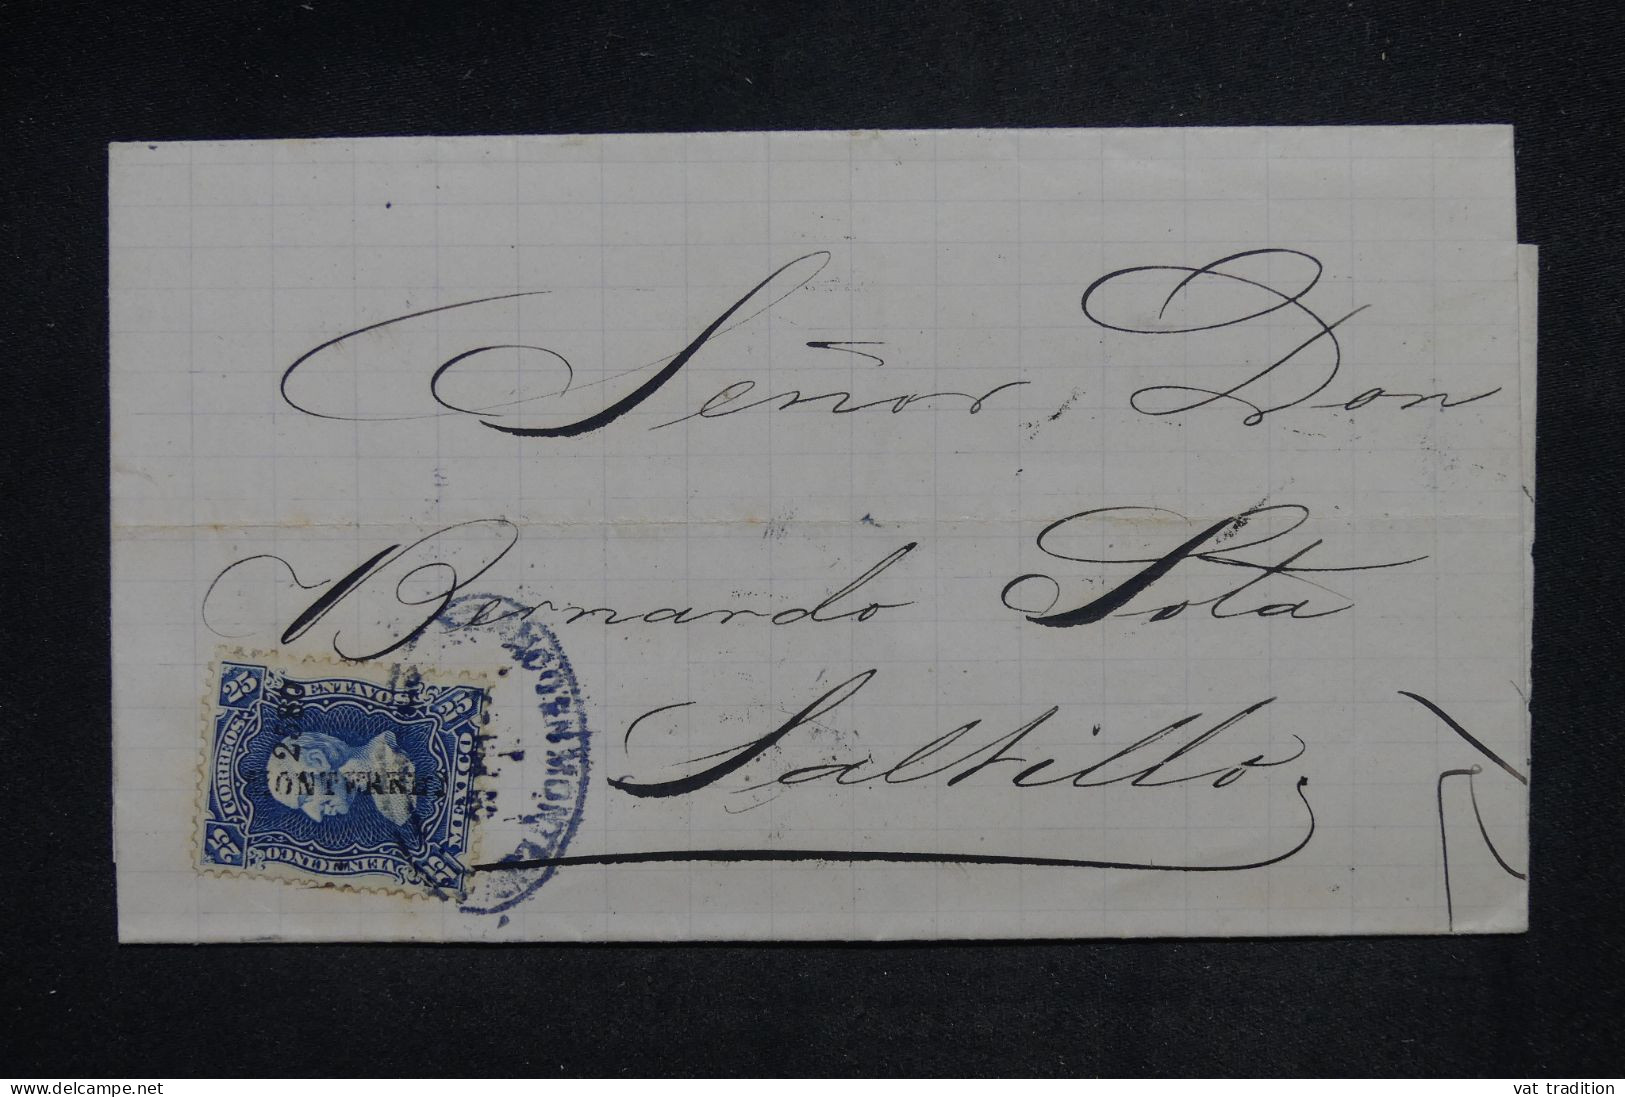 Señor, Don
Bernardo Sota
Saltillo
25 CENTAVOS 25
CORREOS
MEXICO
25 VEINTICINCO 25
MONTERREY
www.delcampe.com
vat tradition